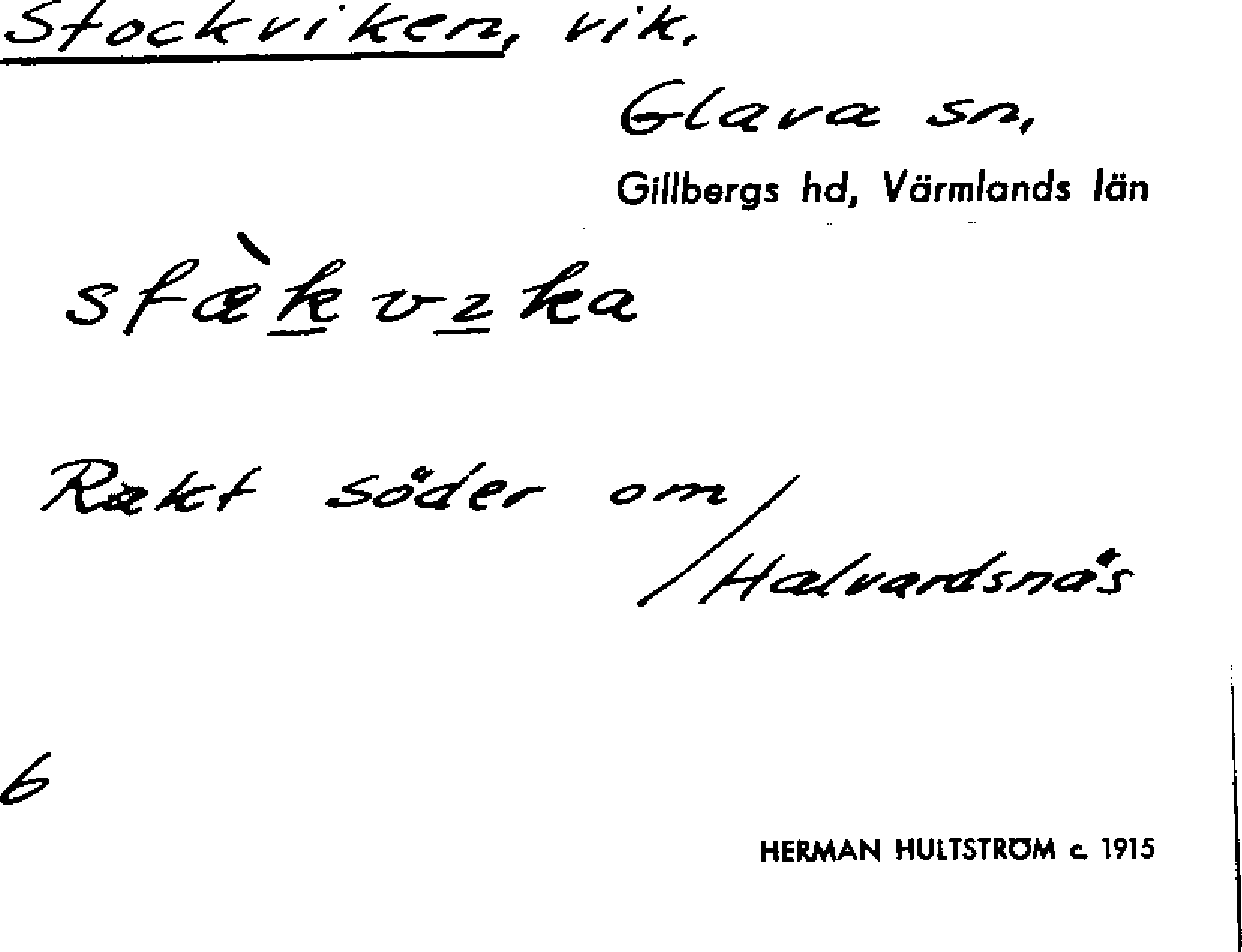 Stockviken, vik.
Glava sn,
Gillbergs hd, Värmlands län
stæ̀kvɩka
Rakt söder om
/Halvardsnäs
6
HERMAN HULTSTRÖM c. 1915